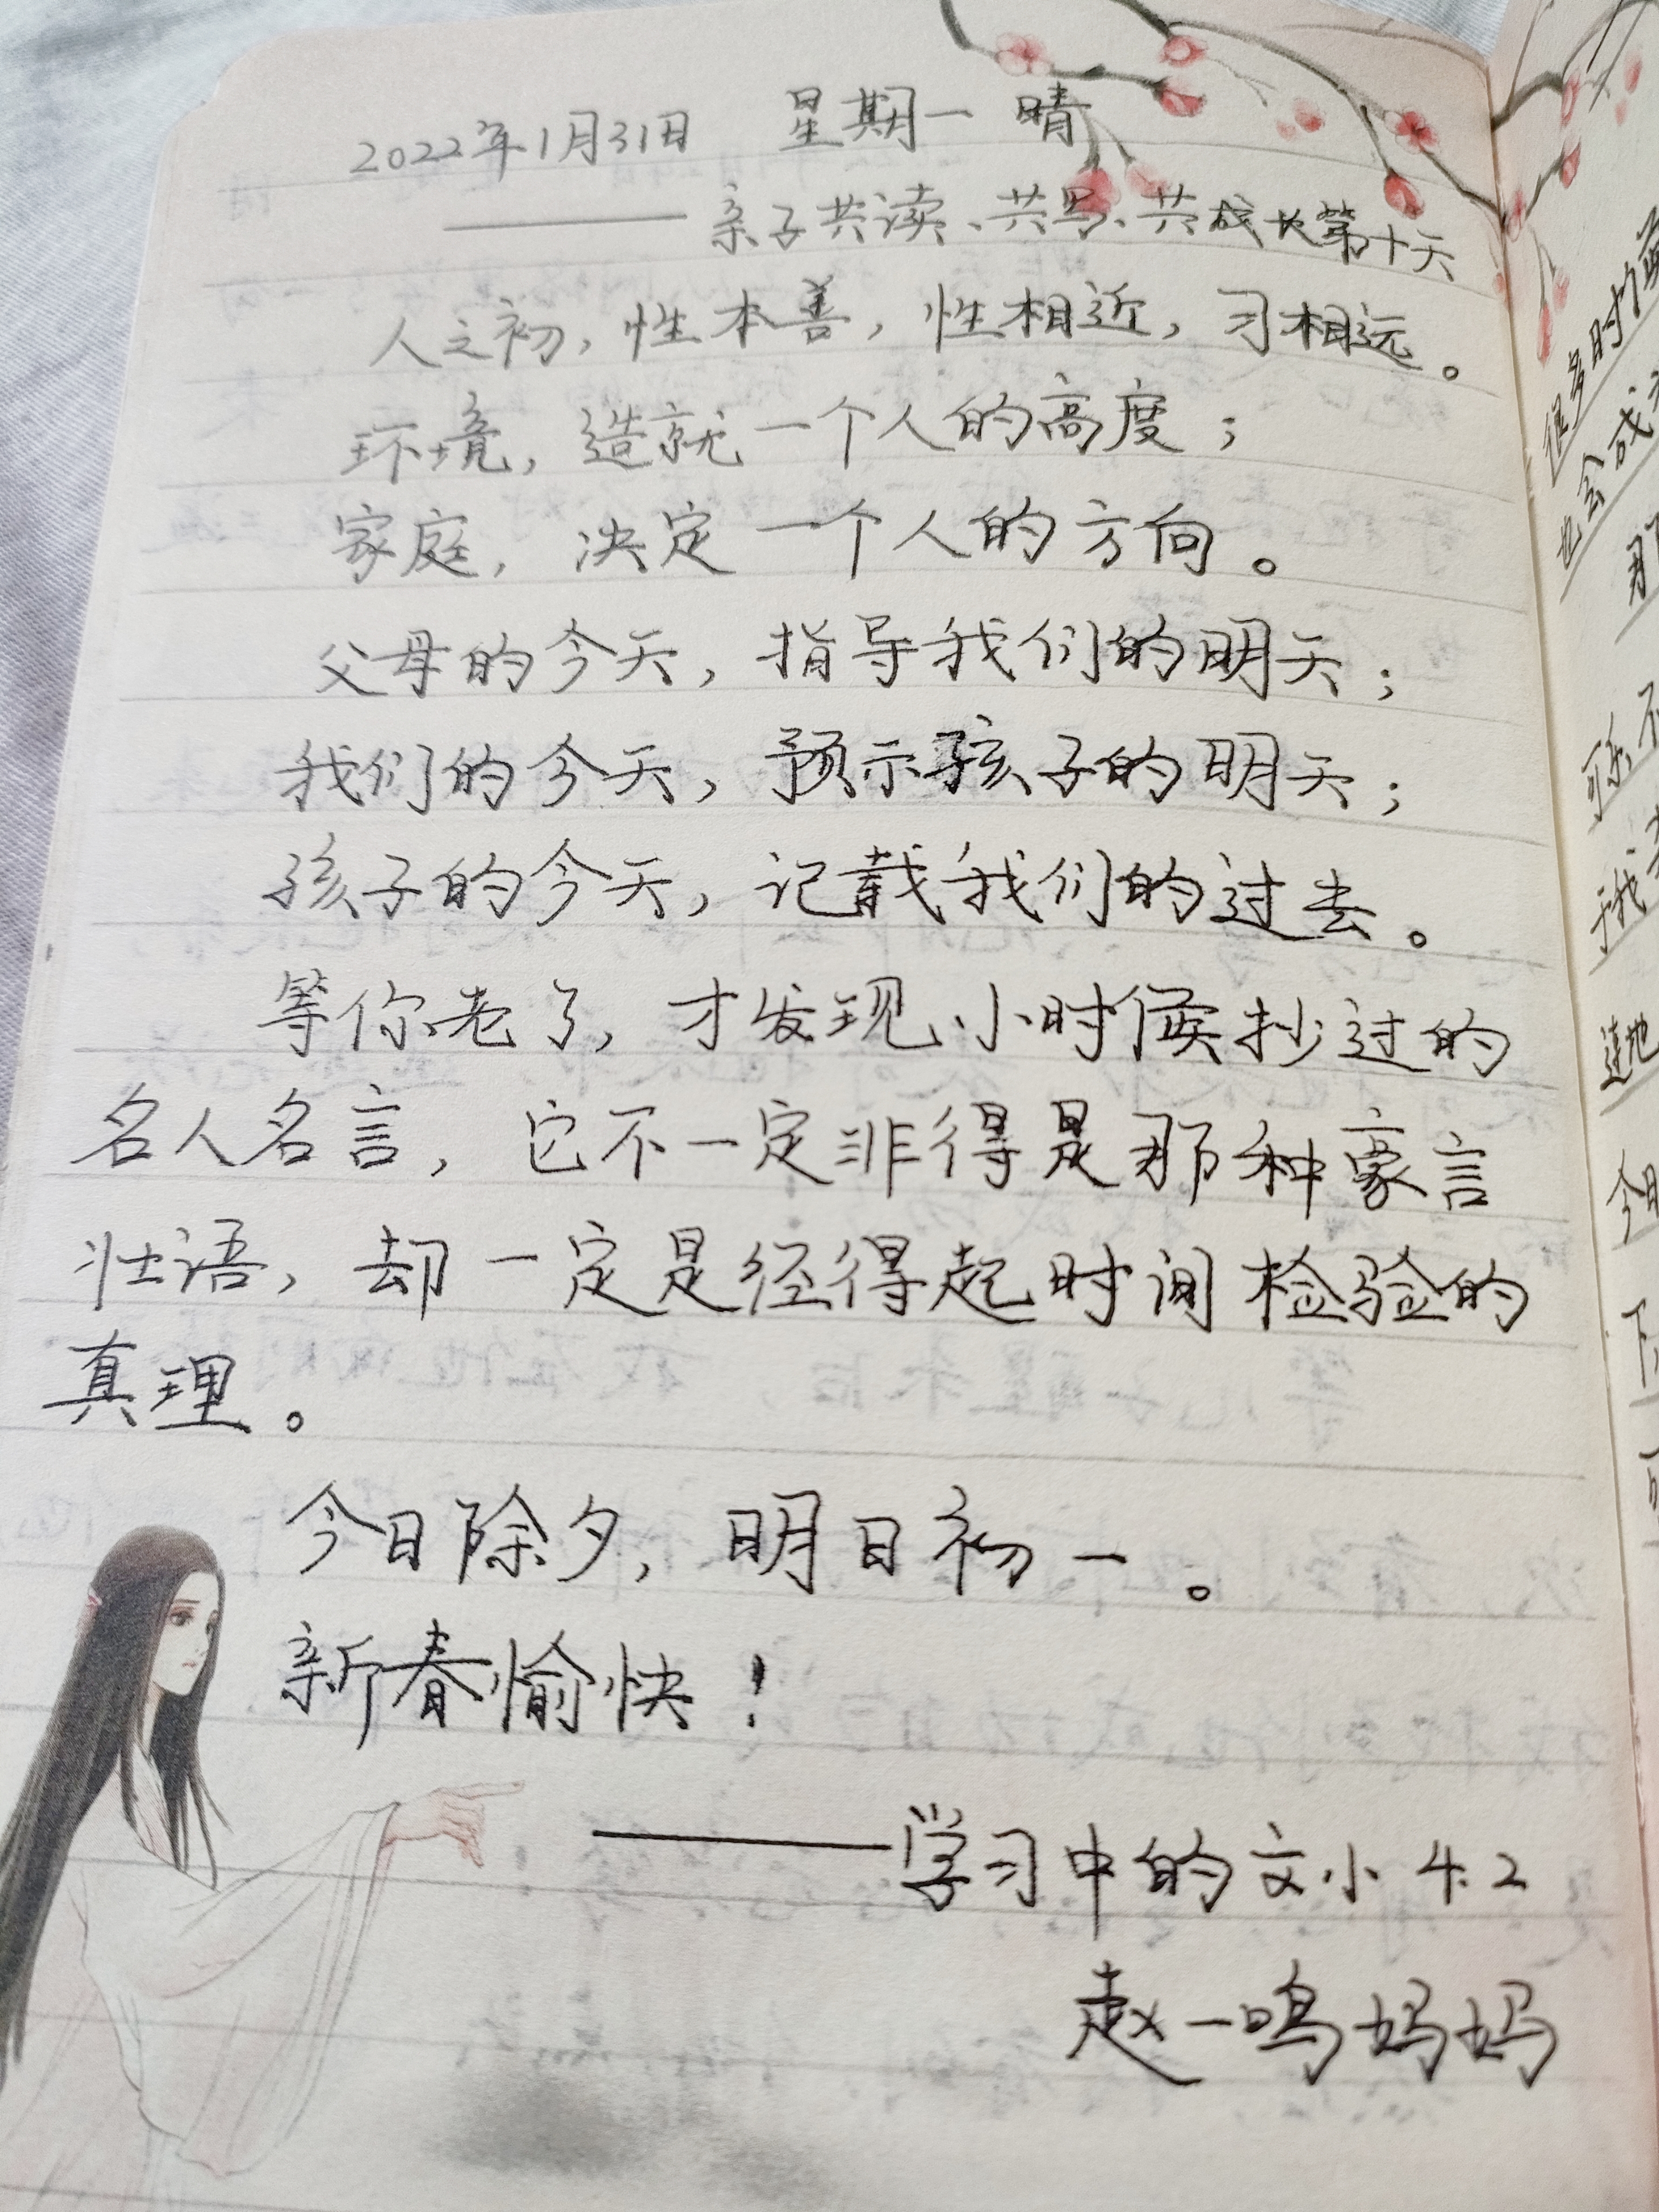 2022年1月31日 星期一 晴
——亲子共读、共写、共成长第十天
人之初，性本善，性相近，习相远。
环境，造就一个人的高度；
家庭，决定一个人的方向。
父母的今天，指导我们的明天；
我们的今天，预示孩子的明天；
孩子的今天，记载我们的过去。
等你老了，才发现小时候抄过的
名人名言，它不一定非得是那种豪言
壮语，却一定是经得起时间检验的
真理。
今日除夕，明日初一。
新春愉快！
——学习中的文小4.2
赵一鸣妈妈
很多时
也会成